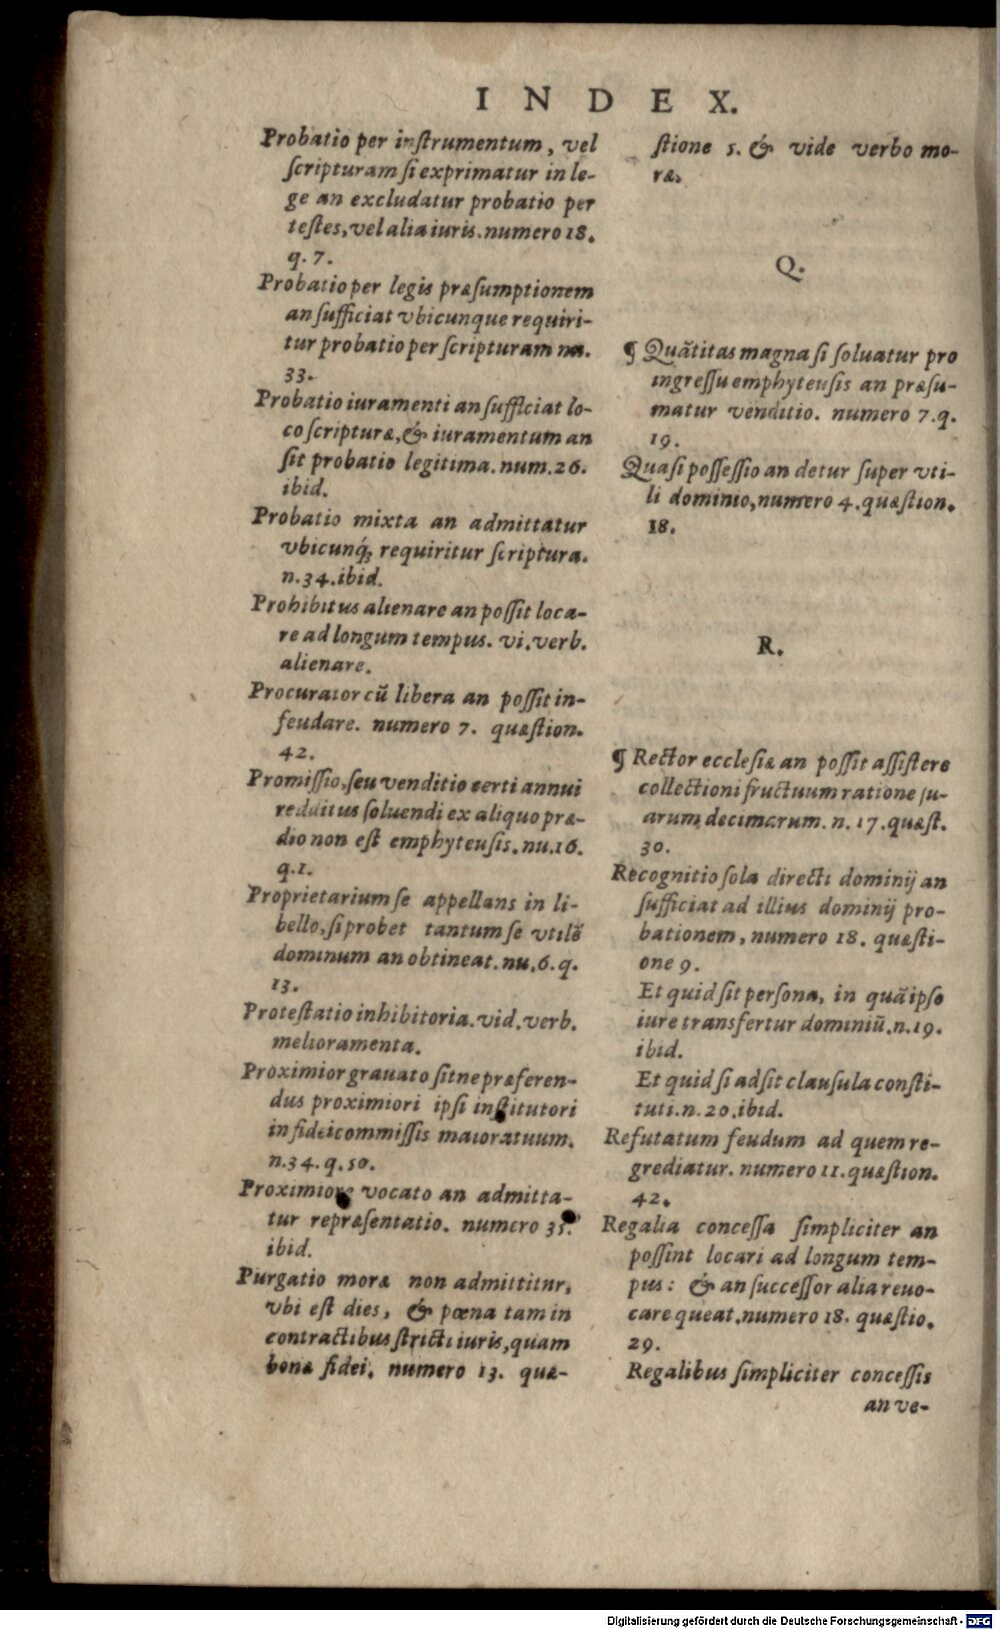 INDEX.
Probatio per instrumentum, vel
scripturam si exprimatur in le-
ge an excludatur probatio per
testes, vel alia iuris. numero 18.
q. 7.
Probatio per legis præsumptionem
an sufficiat vbicunque requiri-
tur probatio per scripturam nu.
33.
Probatio iuramenti an sufficiat lo-
co scripturæ, & iuramentum an
sit probatio legitima. num. 26.
ibid.
Probatio mixta an admittatur
vbicunq́ꝫ requiritur scriptura.
n. 34. ibid.
Prohibitus alienare an possit loca-
re ad longum tempus. vi. verb.
alienare.
Procurator cũ libera an possit in-
feudare. numero 7. quæstion.
42.
Promissio, seu venditio certi annui
redditus soluendi ex aliquo præ-
dio non est emphyteusis. nu. 16.
q. 1.
Proprietarium se appellans in li-
bello, si probet tantum se vtilẽ
dominum an obtineat. nu. 6. q.
13.
Protestatio inhibitoria. vid. verb.
melioramenta.
Proximior grauato sitne præferen-
dus proximiori ipsi institutori
in fideicommissis maioratuum.
n. 34. q. 50.
Proximiore vocato an admitta-
tur repræsentatio. numero 35.
ibid.
Purgatio moræ non admittitur,
vbi est dies, & pœna tam in
contractibus stricti iuris, quam
bonæ fidei. numero 13. quæ-
stione 5. & vide verbo mo-
ræ.
Q.
¶ Quãtitas magna si soluatur pro
ingressu emphyteusis an præsu-
matur venditio. numero 7. q.
19.
Quasi possessio an detur super vti-
li dominio, numero 4. quæstion.
18.
R.
¶ Rector ecclesiæ an possit assistere
collectioni fructuum ratione su-
arum decimarum. n. 17. quæst.
30.
Recognitio sola directi dominij an
sufficiat ad illius dominij pro-
bationem, numero 18. quæsti-
one 9.
Et quid sit persona, in quã ipso
iure transfertur dominiũ. n. 19.
ibid.
Et quid si adsit clausula consti-
tuti. n. 20. ibid.
Refutatum feudum ad quem re-
grediatur. numero 11. quæstion.
42.
Regalia concessa simpliciter an
possint locari ad longum tem-
pus: & an successor alia reuo-
care queat. numero 18. quæstio.
29.
Regalibus simpliciter concessis
an ve-
Digitalisierung gefördert durch die Deutsche Forschungsgemeinschaft - DFG